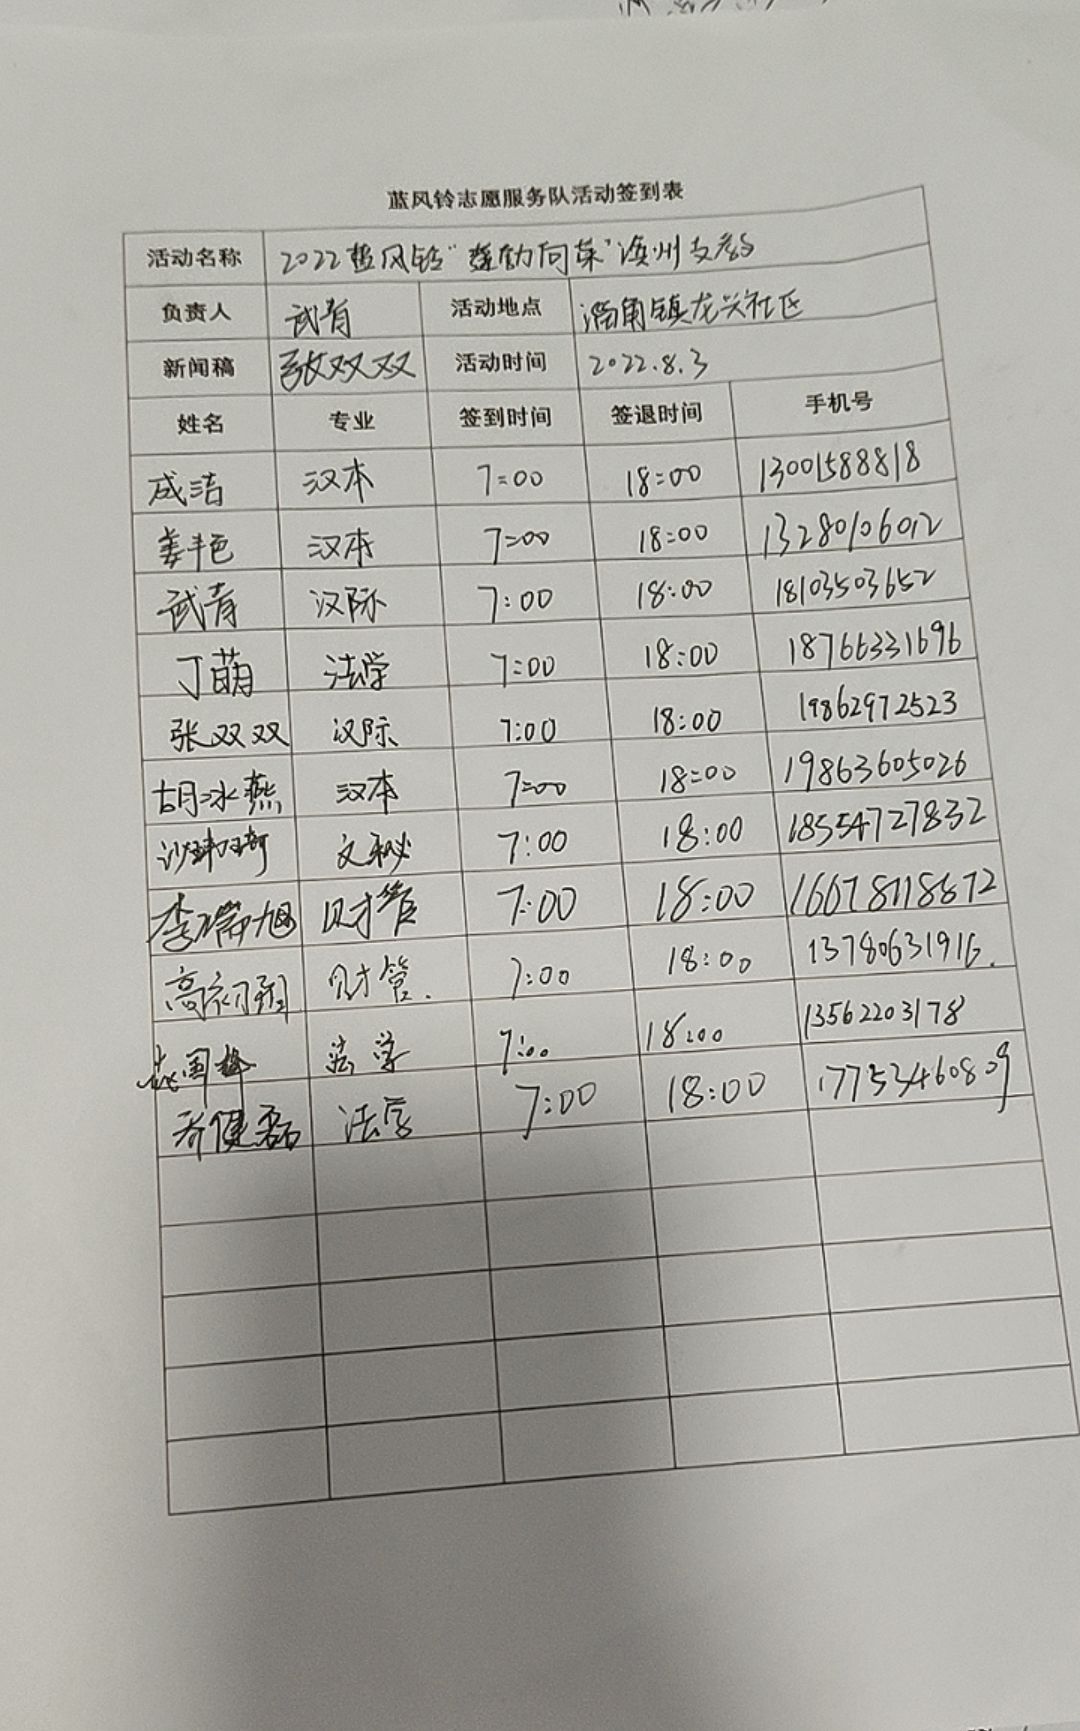 蓝风铃志愿服务队活动签到表
活动名称 2022蓝风铃"蓬勃向菜"滨州支教
负责人 武青 活动地点 滘角镇龙兴社区
新闻稿 张双双 活动时间 2022.8.3
姓名 专业 签到时间 签退时间 手机号
成洁 汉本 7:00 18:00 13001588818
姜艳 汉本 7:00 18:00 13280106012
武青 汉际 7:00 18:00 18103503652
丁萌 法学 7:00 18:00 18766331696
张双双 汉际 7:00 18:00 19862972523
胡冰燕 汉本 7:00 18:00 19863605026
文秘 7:00 18:00 18554727832
李瑞旭 财管 7:00 18:00 16678118672
高初 财管. 7:00 18:00 13780631916.
法学 7:00 18:00 13562203178
乔健磊 法学 7:00 18:00 17753460809